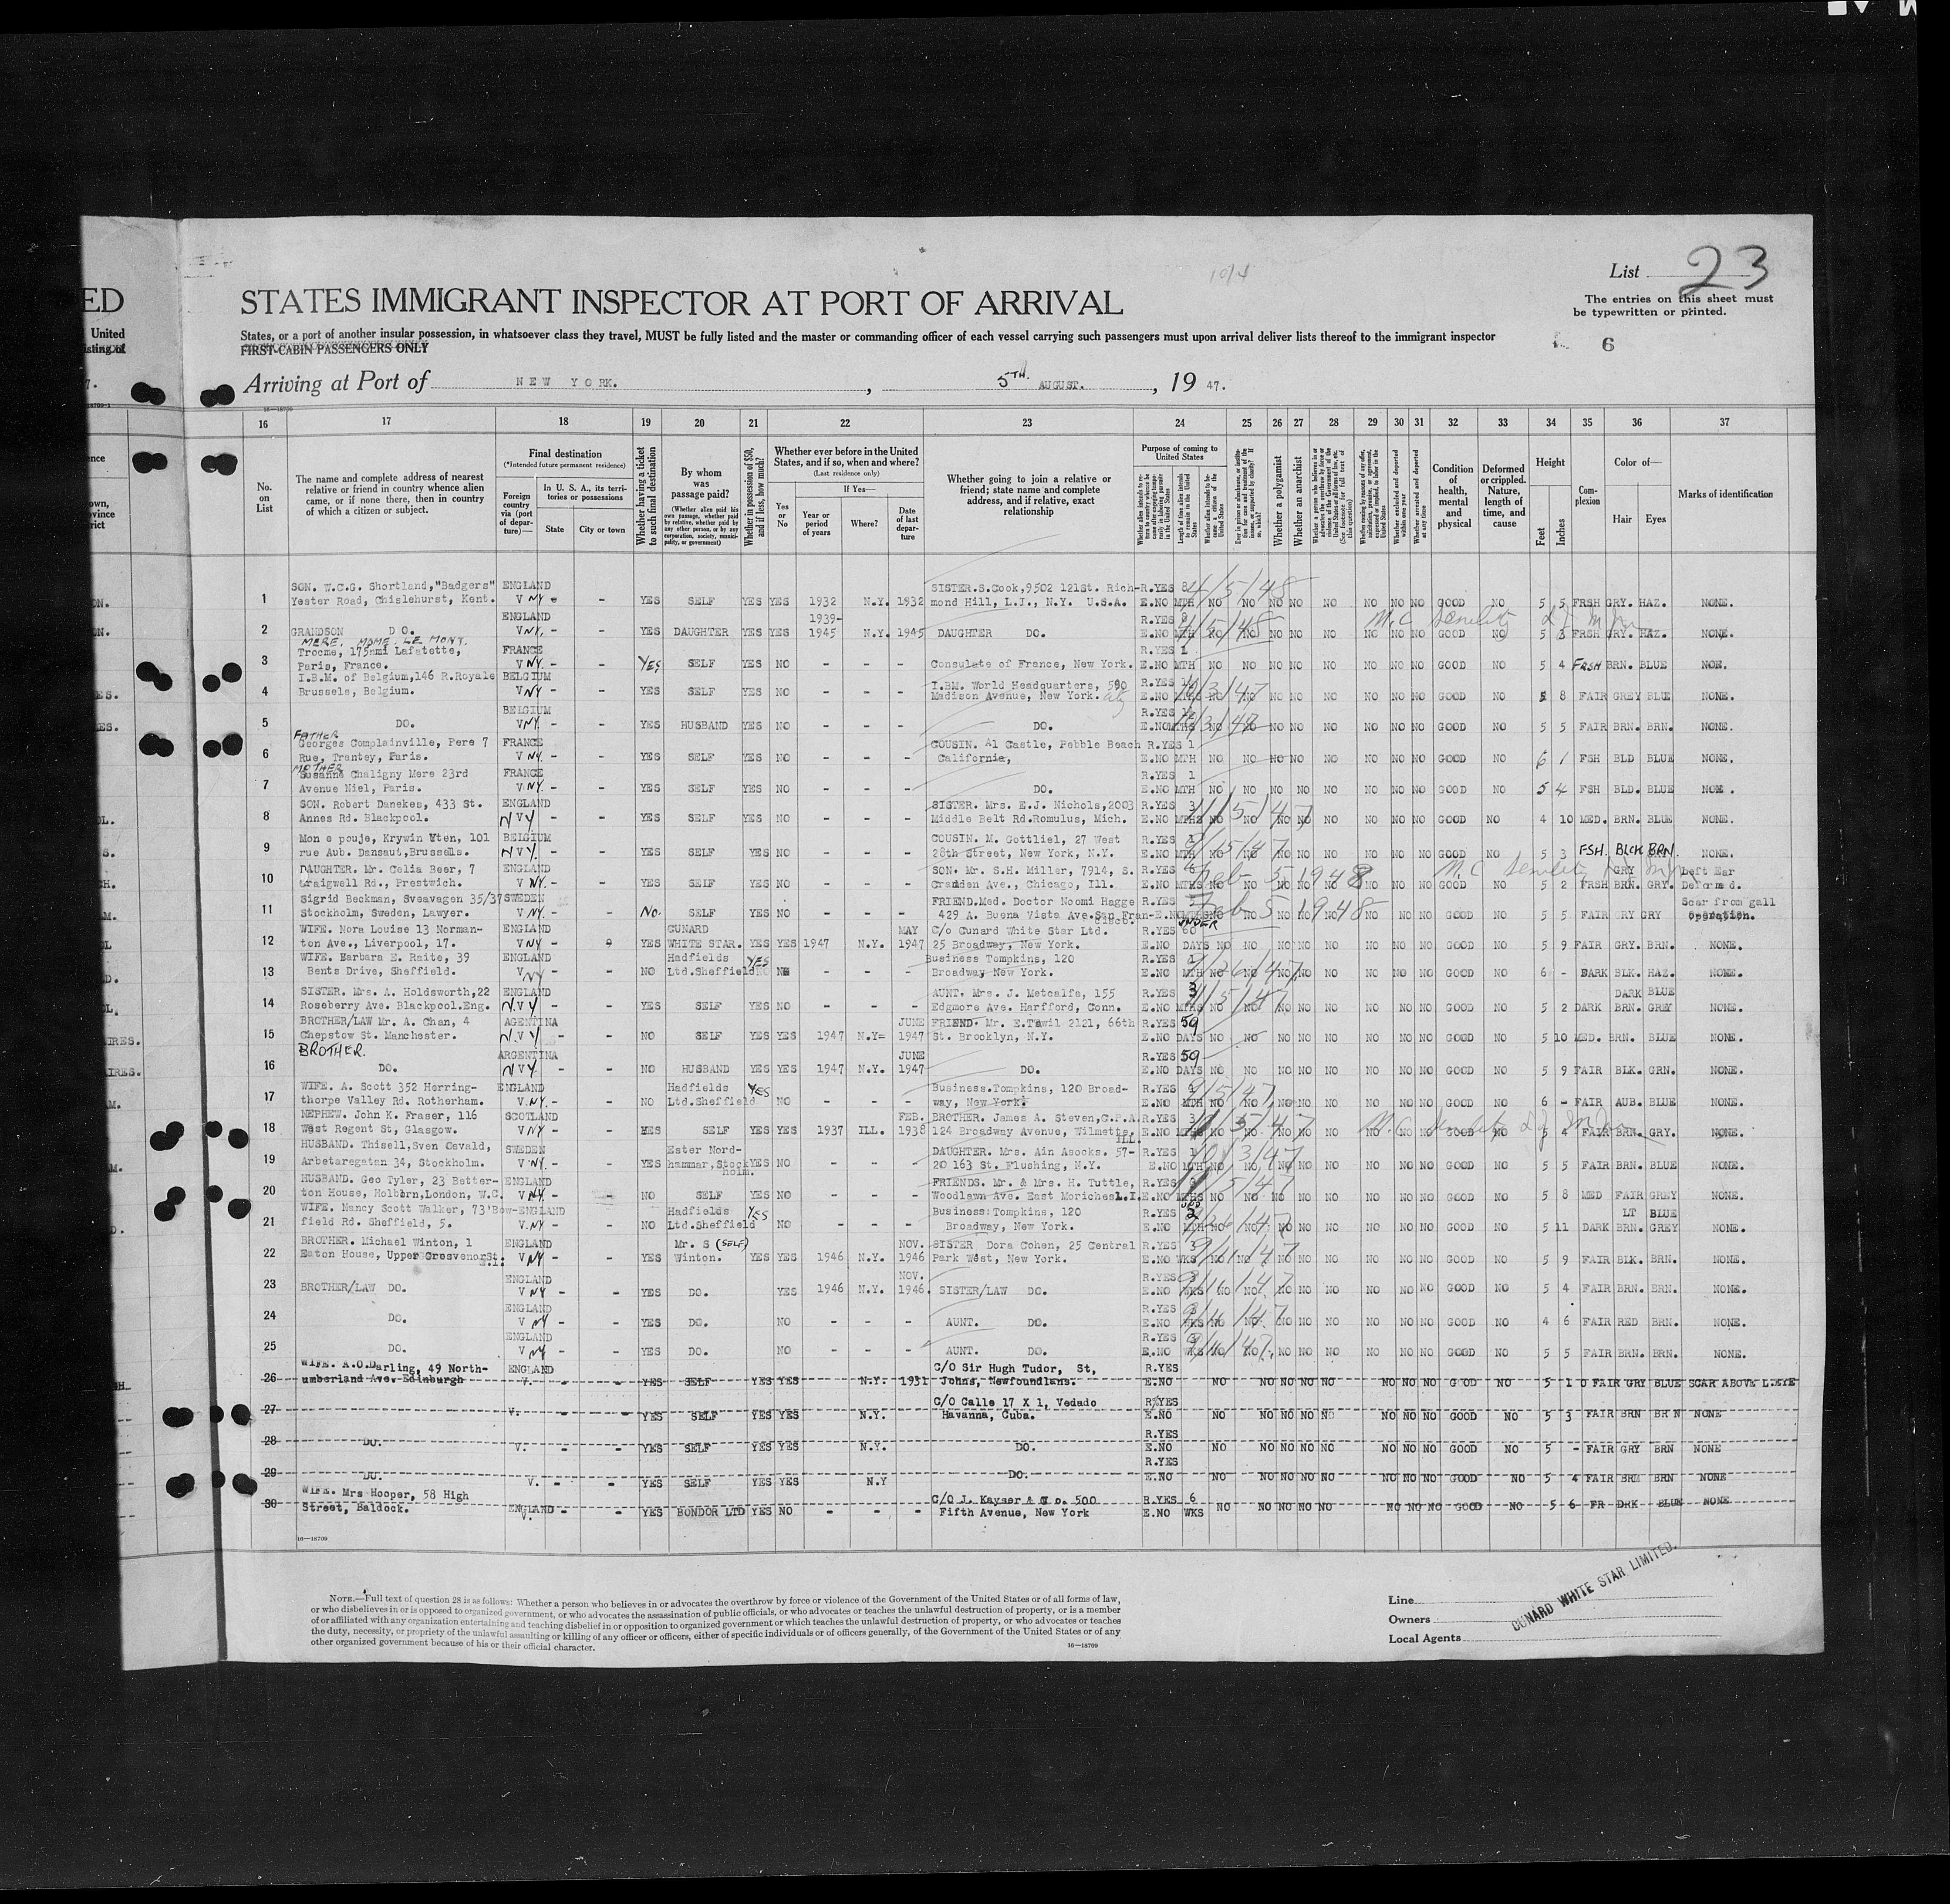 List 23
The entries on this sheet must
be typewritten or printed.
ED
STATES IMMIGRANT INSPECTOR AT PORT OF ARRIVAL
United
States, or a port of another insular possession, in whatsoever class they travel, MUST be fully listed and the master or commanding officer of each vessel carrying such passengers must upon arrival deliver lists thereof to the immigrant inspector
FIRST-CABIN PASSENGERS ONLY
6
Arriving at Port of NEW YORK. , 5TH. AUGUST. , 19 47.
16—18709
16 17 18 19 20 21 22 23 24 25 26 27 28 29 30 31 32 33 34 35 36 37
No. on List
The name and complete address of nearest relative or friend in country whence alien came, or if none there, then in country of which a citizen or subject.
Final destination
(*Intended future permanent residence)
Foreign country via (port of departure)—
In U. S. A., its territories or possessions
State
City or town
Whether having a ticket to such final destination
By whom was passage paid?
(Whether alien paid his own passage, whether paid by relative, whether paid by any other person, or by any corporation, society, municipality, or government)
Whether in possession of $50, and if less, how much?
Whether ever before in the United States, and if so, when and where?
(Last residence only)
Yes or No
If Yes—
Year or period of years
Where?
Date of last departure
Whether going to join a relative or friend; state name and complete address, and if relative, exact relationship
Purpose of coming to United States
Whether a polygamist
Whether an anarchist
Condition of health, mental and physical
Deformed or crippled. Nature, length of time, and cause
Height
Feet
Inches
Complexion
Color of—
Hair
Eyes
Marks of identification
SON. W.C.G. Shortland, "Badgers" ENGLAND SISTER.S.Cook,9502 121St. Rich- R.YES 8
1 Yester Road, Chislehurst, Kent. V NY - - YES SELF YES YES 1932 N.Y. 1932 mond Hill, L.I., N.Y. U.S.A. E.NO MTH NO NO NO NO NO NO NO NO GOOD NO 5 5 FRSH GRY. HAZ. NONE.
ENGLAND 1939- R.YES
2 GRANDSON DO. V NY. - - YES DAUGHTER YES YES 1945 N.Y. 1945 DAUGHTER DO. E.NO MTH NO NO NO NO NO NO NO NO GOOD NO 5 3 FRSH GRY. HAZ. NONE.
MERE. MOME. LE MONY.
Trocme, 175ami Lafatette, FRANCE R.YES 1
3 Paris, France. V NY. - - YES SELF YES NO - - - Consulate of France, New York. E.NO MTH NO NO NO NO NO NO NO NO GOOD NO 5 4 FRSH BRN. BLUE NOE.
I.B.M. of Belgium,146 R.Royale BELGIUM I.BM. World Headquarters, 590 R.YES
4 Brussels, Belgium. V NY - - YES SELF YES NO - - - Madison Avenue, New York. E.NO NO NO NO NO NO NO NO NO GOOD NO 5 8 FAIR GREY BLUE NONE.
BELGIUM R.YES
5 DO. V NY. - - YES HUSBAND YES NO - - - DO. E.NO MTHS NO NO NO NO NO NO NO NO GOOD NO 5 5 FAIR BRN. BRN. NONE.
FATHER
Georges Complainville, Pere 7 FRANCE COUSIN. Al Castle, Pebble Beach R.YES 1
6 Rue, Trantey, Paris. V NY. - - YES SELF YES NO - - - California, E.NO MTH NO NO NO NO NO NO NO NO GOOD NO 6 1 FSH BLD BLUE NONE.
MOTHER
Susanne Chaligny Mere 23rd FRANCE R.YES 1
7 Avenue Niel, Paris. V NY. - - YES SELF YES NO - - - DO. E.NO MTH NO NO NO NO NO NO NO NO GOOD NO 5 4 FSH BLD. BLUE
SON. Robert Danekes, 433 St. ENGLAND SISTER. Mrs. E.J. Nichols,2003 R.YES 3 11/5/47
8 Annes Rd. Blackpool. N V Y - - YES SELF YES NO - - - Middle Belt Rd.Romulus, Mich. E.NO MTHS NO NO NO NO NO NO NO NO GOOD NO 4 10 MED. BRN. BLUE NONE.
Mon e pouje, Krywin Uten, 101 BELGIUM COUSIN. M. Gottliel, 27 West R.YES 1
9 rue Aub. Dansaut,Brussels. N V Y. - - YES SELF YES NO - - - 28th Street, New York, N.Y. E.NO MTH NO NO NO NO NO NO NO NO GOOD NO 5 3 FSH. BLCK BRN. NONE.
DAUGHTER. Mr. Celia Beer, 7 ENGLAND SON. Mr. S.H. Miller, 7914, S. R.YES 6 Feb 5 1948 GRY Left Ear
10 Craigwell Rd., Prestwich. V NY. - - YES SELF YES NO - - - Cranden Ave., Chicago, Ill. E.NO MTHS NO NO NO NO NO NO NO GOOD NO 5 2 FRSH BRN. GRY. Deformed.
Sigrid Beckman, Sveavagen 35/37 SWEDEN FRIEND.Med. Doctor Noomi Hagge R.YES Feb 5 1948 Scar from gall
11 Stockholm, Sweden, Lawyer. V NY. - - No. SELF YES NO - - - 429 A. Buena Vista Ave.San Fran- E.NO NO NO NO NO NO NO NO GOOD NO 5 5 FAIR GRY GRY operation.
WIFE. Nora Louise 13 Norman- ENGLAND CUNARD MAY C/o Cunard White Star Ltd. R.YES UNDER 60
12 ton Ave., Liverpool, 17. V NY - YES WHITE STAR. YES YES 1947 N.Y. 1947 25 Broadway, New York. E.NO DAYS NO NO NO NO NO NO NO NO GOOD NO 5 9 FAIR GRY. BRN. NONE.
WIFE. Barbara E. Raite, 39 ENGLAND Hadfields YES Business Tompkins, 120 R.YES 1
13 Bents Drive, Sheffield. V NY - - NO Ltd.Sheffield - - - Broadway New York. E.NO MTH NO NO NO NO NO NO NO NO GOOD NO 6 - DARK BLK. HAZ. NONE.
SISTER. Mrs. A. Holdsworth,22 ENGLAND AUNT. Mrs. J. Metcalfe, 155 R.YES 3 11/5/47 DARK BLUE
14 Roseberry Ave. Blackpool.Eng. N.V Y - - YES SELF YES NO - - - Edgmore Ave. Harfford, Conn. E.NO MTHS NO NO NO NO NO NO NO NO GOOD NO 5 2 DARK BRN. GREY NONE.
BROTHER/LAW Mr. A. Chan, 4 AGENTINA JUNE FRIEND. Mr. E.Tawil 2121, 66th R.YES 59
15 Chepstow St. Manchester. N.V Y - - NO SELF YES YES 1947 N.Y= 1947 St. Brooklyn, N.Y. E.NO DAYS NO NO NO NO NO NO NO NO GOOD NO 5 10 MED. BRN. BLUE NONE.
BROTHER. ARGENTINA JUNE R.YES 59
16 DO. N V Y - - NO HUSBAND YES YES 1947 N.Y. 1947 DO. E.NO DAYS NO NO NO NO NO NO NO NO GOOD NO 5 9 FAIR BLK. GRN. NONE.
WIFE. A. Scott 352 Herring- ENGLAND Hadfields YES Business.Tompkins, 120 Broad- R.YES
17 thorpe Valley Rd. Rotherham. V.NY. - - NO Ltd.Sheffield NO - - - way, New York. E.NO MTH NO NO NO NO NO NO NO NO GOOD NO 6 - FAIR AUB. BLUE NONE.
NEPHEW. John K. Fraser, 116 SCOTLAND FEB. BROTHER. James A. Steven,C.P.A. R.YES 3
18 West Regent St, Glasgow. V NY - - YES SELF YES YES 1937 ILL. 1938 124 Broadway Avenue, Wilmette, ILL. E.NO MTHS NO NO NO NO NO NO NO NO GOOD NO 5 4 FAIR BRN. GRY. NONE.
HUSBAND. Thisell,Sven Osvald, SWEDEN Eater Nord- DAUGHTER. Mrs. Ain Asocks. 57- R.YES
19 Arbetaregatan 34, Stockholm. V NY. - - YES hammar,Stockholm. YES NO - - - 20 163 St. Flushing, N.Y. E.NO MTH NO NO NO NO NO NO NO NO GOOD NO 5 5 FAIR BRN. BLUE NONE.
HUSBAND. Geo Tyler, 23 Better- ENGLAND FRIENDS. Mr. & Mrs. H. Tuttle, R.YES 11/5/47
20 ton House, Holborn,London, W.C. V NY. - - NO SELF YES NO - - - Woodlawn Ave. East Moriches L.I. E.NO MTHS NO NO NO NO NO NO NO NO GOOD NO 5 8 MED FAIR GREY NONE.
WIFE. Nancy Scott Walker, 73'Bow- ENGLAND Hadfields YES Business:Tompkins, 120 R.YES 2 LT BLUE
21 field Rd. Sheffield, 5. V.NY - - NO Ltd.Sheffield NO - - - Broadway, New York. E.NO MTH NO NO NO NO NO NO NO NO GOOD NO 5 11 DARK BRN. GREY NONE.
BROTHER. Michael Winton, 1 ENGLAND Mr. S (SELF) NOV. SISTER Dora Cohen, 25 Central R.YES 3
22 Eaton House, Upper Grosvenor St. V NY - - YES Winton. YES YES 1946 N.Y. 1946 Park West, New York. E.NO WKS NO NO NO NO NO NO NO NO GOOD NO 5 9 FAIR BLK. BRN. NONE.
ENGLAND NOV. R.YES
23 BROTHER/LAW DO. V NY - - YES DO. YES 1946 N.Y. 1946. SISTER/LAW DO. E.NO WKS NO NO NO NO NO NO NO NO GOOD NO 5 4 FAIR BRN. BRN. NONE.
ENGLAND R.YES
24 DO. V NY - - YES DO. NO - - - AUNT. DO. E.NO WKS NO NO NO NO NO NO NO NO GOOD NO 4 6 FAIR RED BRN. NONE.
ENGLAND R.YES
25 DO. V NY - - YES DO. NO - - - AUNT. DO. E.NO WKS NO NO NO NO NO NO NO NO GOOD NO 5 5 FAIR BRN. BRN. NONE.
WIFE. A.O.Darling, 49 North- ENGLAND C/O Sir Hugh Tudor, St, R.YES
26 umberland Ave. Edinburgh V. - - YES SELF YES YES N.Y. 1931 Johns, Newfoundlans. E.NO NO NO NO NO NO NO NO NO GOOD NO 5 10 FAIR GRY BLUE SCAR ABOVE L.EYE
C/O Calle 17 X 1, Vedado R.YES
27 V. - - YES SELF YES YES N.Y. Havanna, Cuba. E.NO NO NO NO NO NO NO NO NO GOOD NO 5 3 FAIR BRN BRN NONE
R.YES
28 DO. V. - - YES SELF YES YES N.Y. DO. E.NO NO NO NO NO NO NO NO NO GOOD NO 5 - FAIR GRY BRN NONE
R.YES
29 DO. V. - - YES SELF YES YES N.Y DO. E.NO NO NO NO NO NO NO NO NO GOOD NO 5 4 FAIR BRN BRN NONE
WIFE. Mrs Hooper, 58 High C/O J. Kayser & Co. 500 R.YES 6
30 Street, Baldock. ENGLAND V. - - YES BONDOR LTD YES NO - - - Fifth Avenue, New York E.NO WKS NO NO NO NO NO NO NO NO GOOD NO 5 6 FR DRK BLUE NONE
16—18709
NOTE.—Full text of question 28 is as follows: Whether a person who believes in or advocates the overthrow by force or violence of the Government of the United States or of all forms of law,
or who disbelieves in or is opposed to organized government, or who advocates the assassination of public officials, or who advocates or teaches the unlawful destruction of property, or is a member
of or affiliated with any organization entertaining and teaching disbelief in or opposition to organized government or which teaches the unlawful destruction of property, or who advocates or teaches
the duty, necessity, or propriety of the unlawful assaulting or killing of any officer or officers, either of specific individuals or of officers generally, of the Government of the United States or of any
other organized government because of his or their official character.
16—18709
Line
Owners
Local Agents
CUNARD WHITE STAR LIMITED.